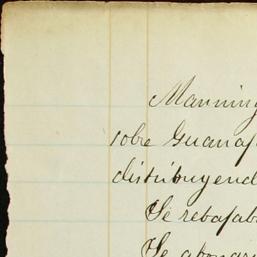 Manning
sobre Guanaj
distribuyend
Se rebajab
Se abonar